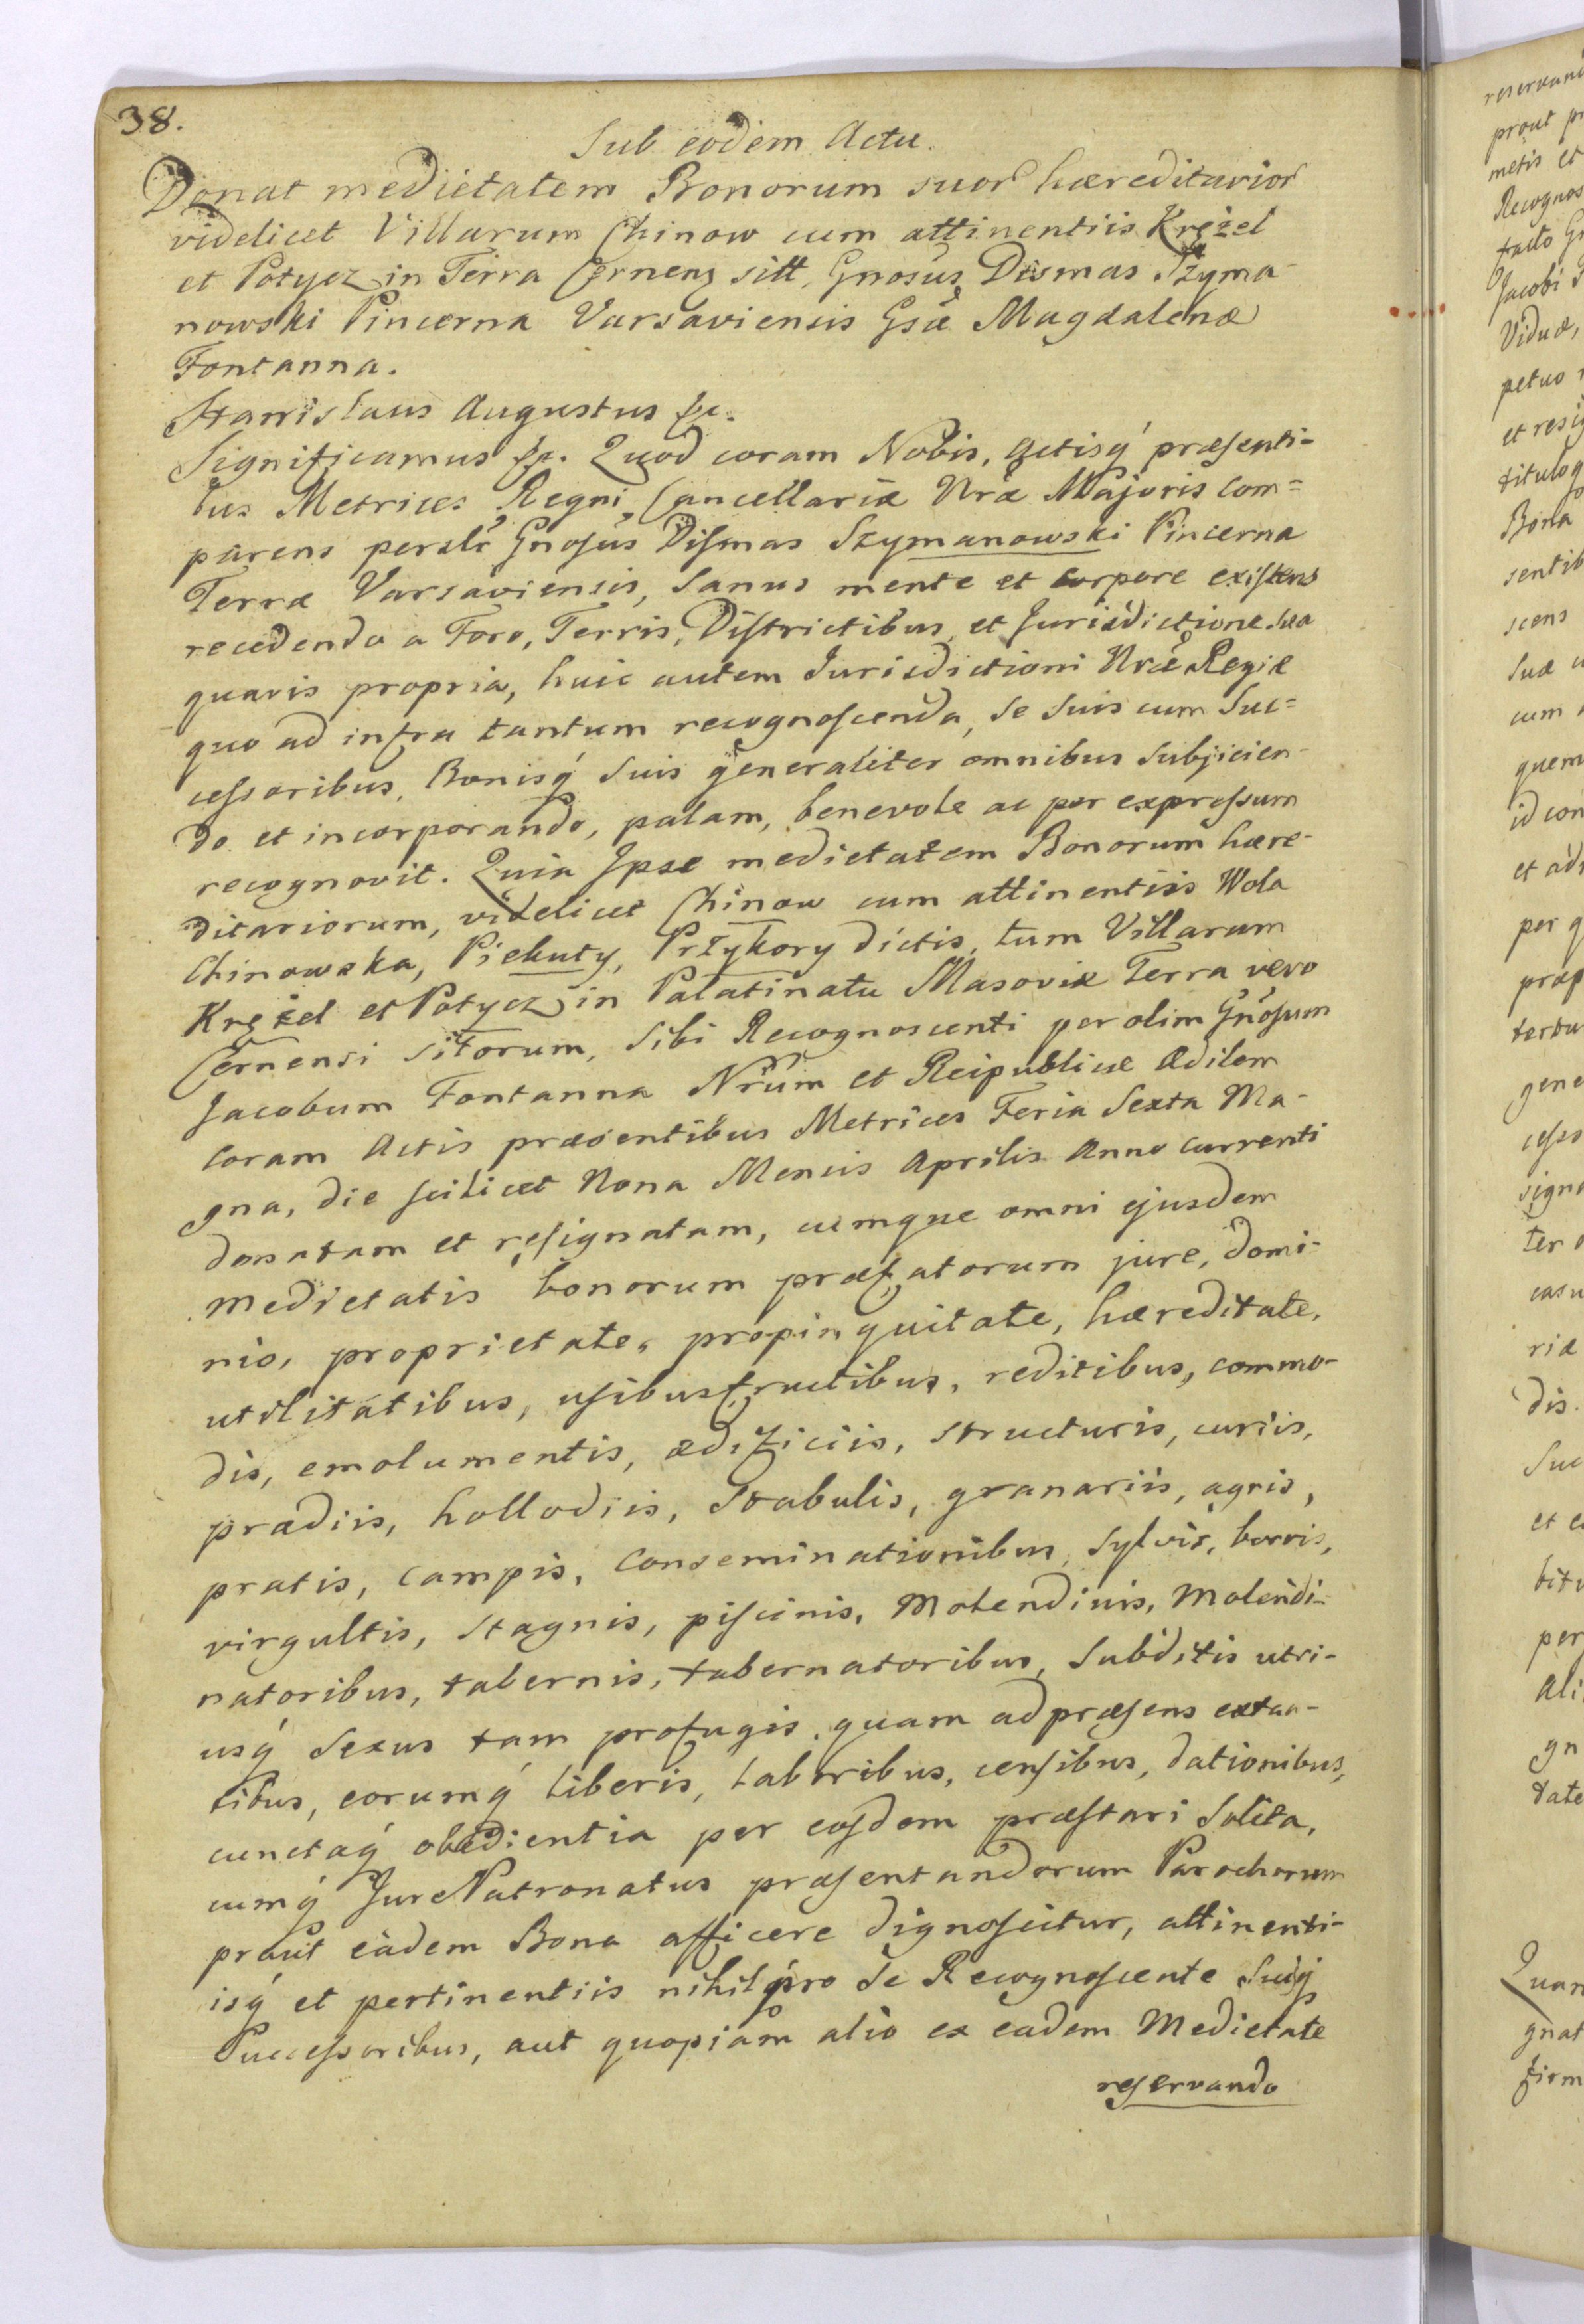 38.
Sub eodem Actu.
Donat medietatem Bonorum suor hæreditarior
videlicet Villarum Chinow cum attinentiis Krężel
et Potycz in Terra Cernen sitt, Gnosus Dismas Szyma-
nowski Pincerna Varsaviensis Gsæ Magdalenæ
Fontanna.
Stanislaus Augustus &c.
Significamus &c. Quod coram Nobis, Actisq́ præsenti-
bus Metrices Regni, Cancellariæ Nræ Majoris Com=
parens persltr Gnosus Dismas Szymanowski Pincerna
Terræ Varsaviensis, Sanus mente et corpore existens
recedendo a Foro, Terris, Districtibus, et Jurisdictione sua
quavis propria, huic autem Jurisdictioni Nræ Regiæ
quo ad infra tantum recognoscenda, se suis cum Suc=
cessoribus, Bonisq́ suis generaliter omnibus subjicien-
do et incorporando, palam, benevole ac per expressum
recognovit. Quia Ipse medietatem Bonorum hære-
ditariorum, videlicet Chinow cum attinentiis Wola
Chinowska, Piekuty, Przykory dictis, tum Villarum
Krężel et Potycz in Palatinatu Masoviæ Terra vero
Cernensi sitorum, sibi Recognoscenti per olim Gnosum
Jacobum Fontanna Nrum et Reipublicæ Ædilem
Coram Actis præsentibus Metrices Feria Sexta Ma-
gna, die scilicet Nona Mensis Aprilis Anno currenti
donatam et resignatam, cumque omni ejusdem
medietatis bonorum præfatorum jure, domi-
nio, proprietate, propinquitate, hæreditate,
utilitatibus, usibusfructibus, reditibus, commo-
dis, emolumentis, ædificiis, structuris, curiis,
prædiis, hollodiis, stabulis, granariis, agris,
pratis, campis, conseminationibus, sylvis, borris,
virgultis, stagnis, piscinis, Molendinis, Molendi-
natoribus, tabernis, tabernatoribus, subditis utri-
usq́ sexus tam profugis, quam ad præsens extan-
tibus, eorumq́ liberis, laboribus, censibus, dationibus,
cunctaq́ obedientia per eosdem præstari solita,
cumq́ Jure Patronatus præsentandorum Parochorum
prout eadem Bona afficere dignoscitur, attinenti-
isq́ et pertinentiis nihil pro se Recognoscente suisq́
Successoribus, aut quopiam alio ex eadem Medietate
reservando
prout
metis et
Recognos
facto
Jacobi
Viduæ,
petuo
et resig
titulog
Bona
sentib
scens
Suæ
cum
quem
id con
et adr
per q
præp
gene
cesso
signa
ter
casu
riæ
dis.
Suc
et
bitu
per
ali
gn
tate
Quan
gnat
firm